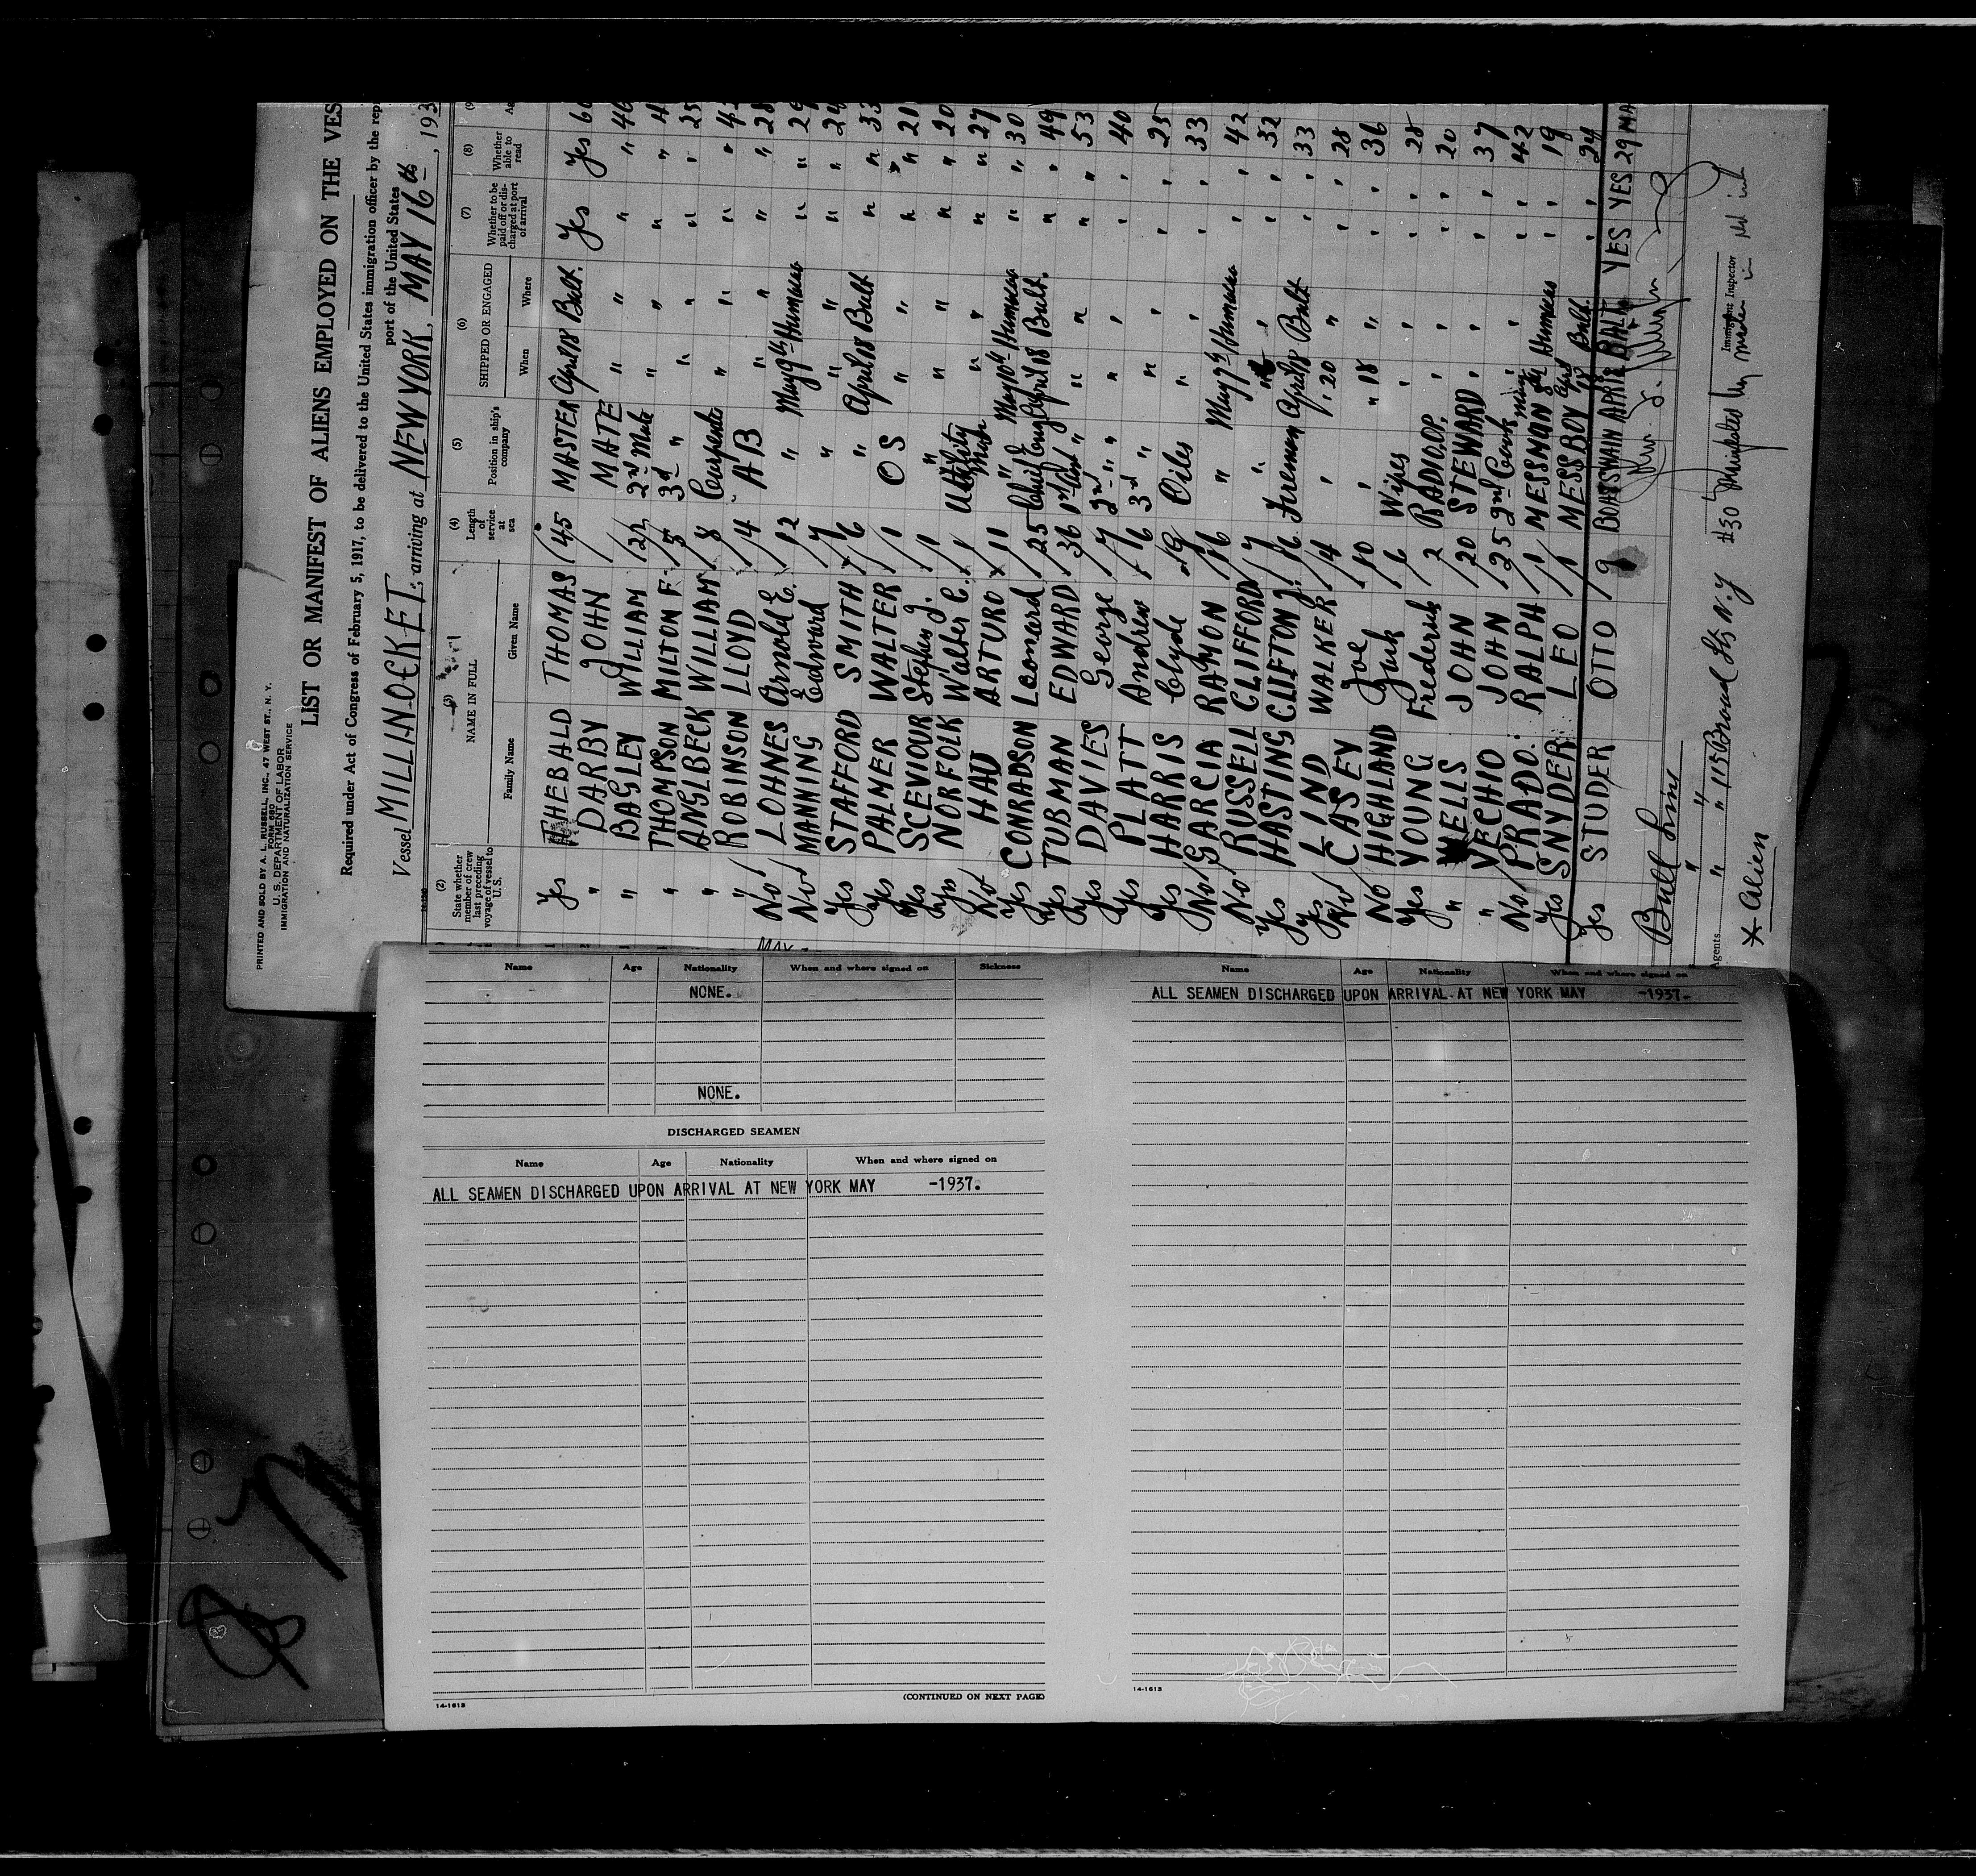 PRINTED AND SOLD BY A. L. RUSSELL, INC., 47 WEST ST., N. Y.
FORM 680
U. S. DEPARTMENT OF LABOR
IMMIGRATION AND NATURALIZATION SERVICE
LIST OR MANIFEST OF ALIENS EMPLOYED ON THE VES
Required under Act of Congress of February 5, 1917, to be delivered to the United States immigration officer by the rep
port of the United States
Vessel MILLINOCKET, arriving at NEW YORK, MAY 16th, 193
(2) (3) (4) (5) (6) (7) (8) (9
State whether member of crew last preceding voyage of vessel to U. S. NAME IN FULL Length of service at sea Position in ship's company SHIPPED OR ENGAGED Whether to be paid off or discharged at port of arrival Whether able to read Ag
Family Name Given Name When Where
Yes THEBALD THOMAS 45 MASTER April 18 Balt. Yes Yes 6
" DARBY JOHN MATE " " " " 46
" BAGLEY WILLIAM 22 2nd Mate " " " " 4
" THOMPSON MILTON F. 5 3rd " " " " " 25
" ANGLBECK WILLIAM 8 Carpenter " " " " 4
" ROBINSON LLOYD 14 AB " " " " 28
No LOHNES Arnold E. 12 " May 9th Humacao " " 29
No MANNING Edward 7 " " " " " 24
Yes STAFFORD SMITH 6 " April 18 Balt " " 33
Yes PALMER WALTER 1 OS " " " " 21
Yes SCEVIOUR Stephen J. 1 " " " " " 20
Yes NORFOLK Walter C. 1 Utility Man " " " " 27
No HAU ARTURO 11 " May 10th Humacao " " 30
Yes CONRADSON Leonard 25 Chief Eng April 18 Balt. " " 49
Yes TUBMAN EDWARD 36 1st Asst " " " " 53
Yes DAVIES George 7 2nd " " " " " 40
Yes PLATT Andrew 16 3rd " " " " "
Yes HARRIS Clyde Oiler " " " " 33
No GARCIA RAMON 16 " May 9th Humacao " " 42
No RUSSELL CLIFFORD 7 " " " " " 32
Yes HASTING CLIFTON J. 16 Fireman April 18 Balt " " 33
Yes LIND WALKER 4 " " 20 " " " 28
No CASEY Joe 10 " " 18 " " " 36
No HIGHLAND Jack 6 Wiper " " " " 28
Yes YOUNG Frederick 2 RADIO OP. " " " " 20
" WELLS JOHN 20 STEWARD " " " " 37
" VECHIO JOHN 25 2nd Cook " " " " 42
No PRADO. RALPH 1 MESSMAN Humacao " " 19
Yes SNYDER LEO 1 MESSBOY April 18 Balt. " " 24
Yes STUDER OTTO 9 BOATSWAIN APRIL BALT YES YES 29 MA
Bull Lines
" "
Agents " " 115 Broad Sts N.Y
Immigrant Inspector
* Alien
Name Age Nationality When and where signed on Sickness
NONE.
NONE.
DISCHARGED SEAMEN
Name Age Nationality When and where signed on
ALL SEAMEN DISCHARGED UPON ARRIVAL AT NEW YORK MAY -1937.
14-1613
(CONTINUED ON NEXT PAGE)
Name Age Nationality When and where signed on
ALL SEAMEN DISCHARGED UPON ARRIVAL AT NEW YORK MAY -1937.
14-1613